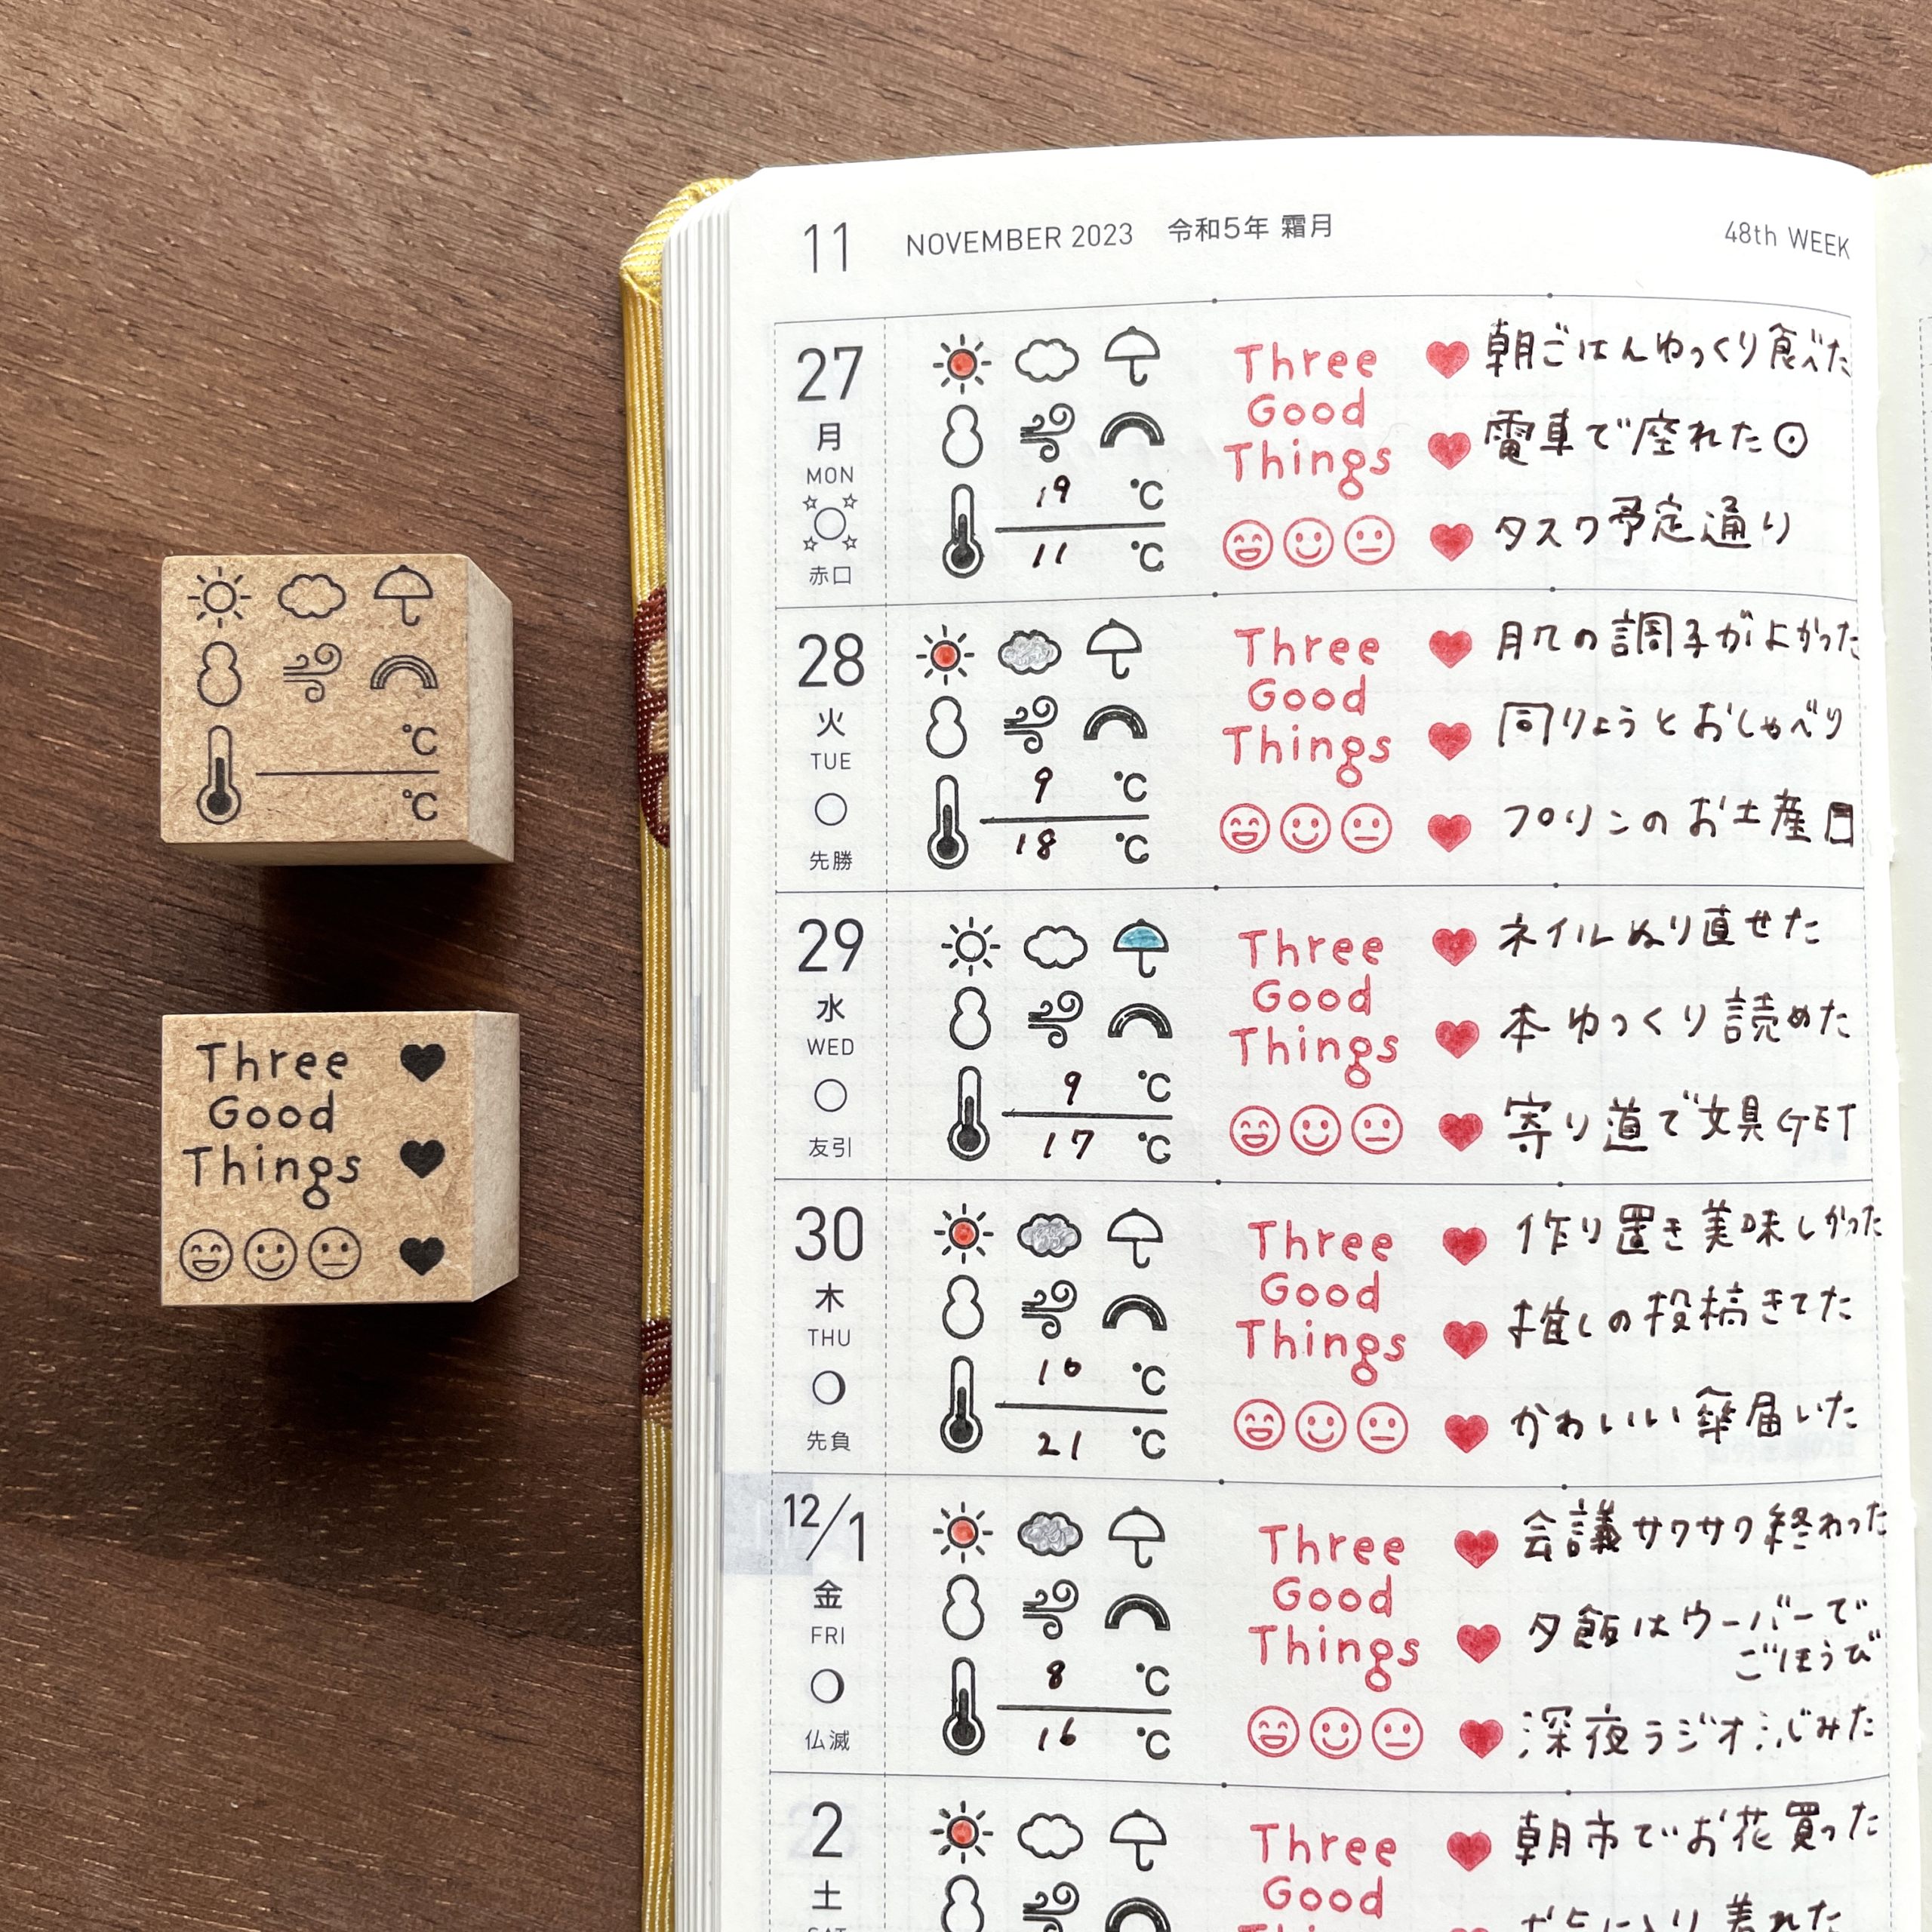 °C
°C
Three
Good
Things
11 NOVEMBER 2023 令和5年 霜月 48th WEEK
27
月
MON
赤口
19 °C
11 °C
Three
Good
Things
朝ごはんゆっくり食べた
電車で座れた
タスク予定通り
28
火
TUE
先勝
9 °C
18 °C
Three
Good
Things
肌の調子がよかった
同りょうとおしゃべり
プリンのお土産
29
水
WED
友引
9 °C
17 °C
Three
Good
Things
ネイルぬり直せた
本ゆっくり読めた
寄り道で文具GET
30
木
THU
先負
10 °C
21 °C
Three
Good
Things
作り置き美味しかった
推しの投稿きてた
かわいい傘届いた
12/1
金
FRI
仏滅
8 °C
16 °C
Three
Good
Things
会議サクサク終わった
夕飯はウーバーで
ごほうび
深夜ラジオ
2
土
SAT
Three
Good
朝市でお花買った